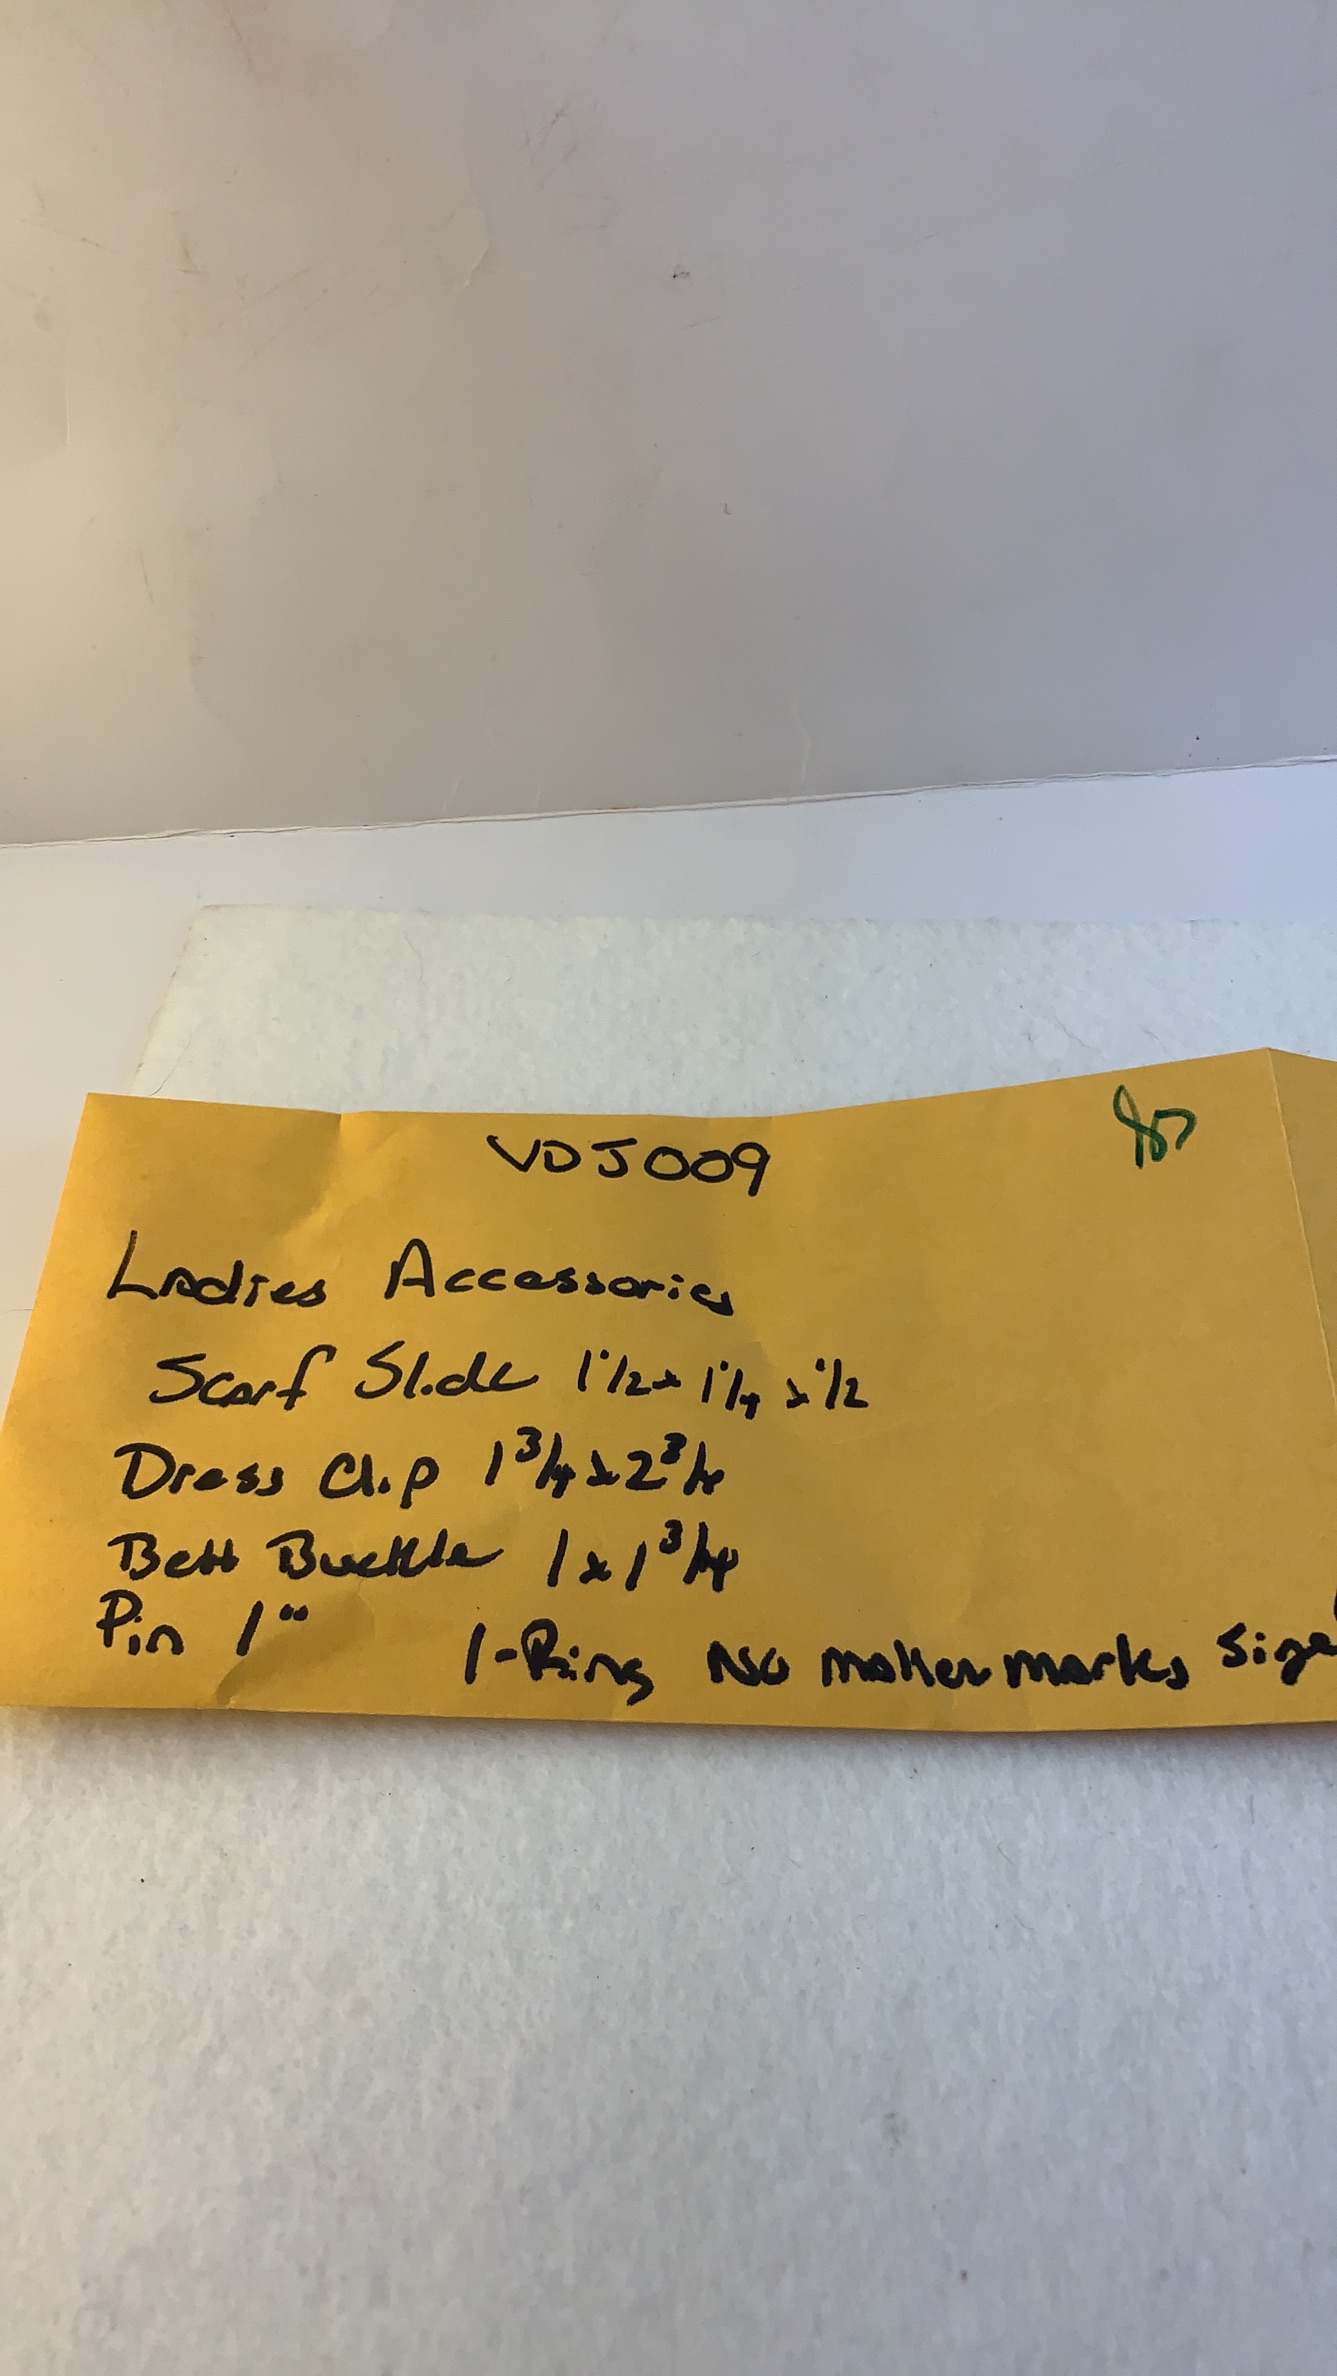 VDJ009
Ladies Accessories
Scarf Slide 1 1/2 x 1 1/4 x 1/2
Dress Clip 1 3/4 x 2 3/4
Belt Buckle 1 x 1 3/4
Pin 1"
1-Ring No maker marks Size